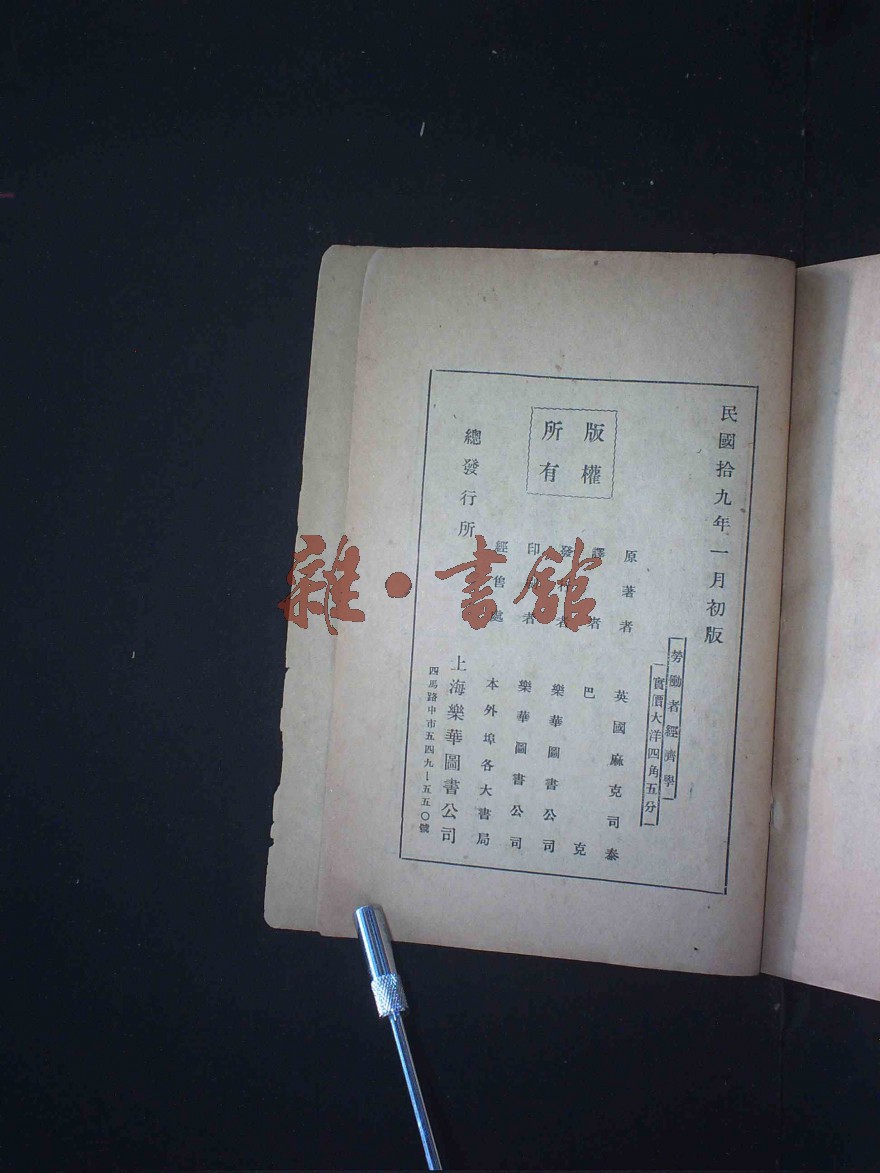 民國拾九年一月初版
勞働者經濟學
實價大洋四角五分
原著者 英國麻克司泰
譯者 巴克
發行者 樂華圖書公司
印刷者 樂華圖書公司
經售處 本外埠各大書局
版權所有
總發行所 上海樂華圖書公司
四馬路中市五四九—五五〇號
雜·書館